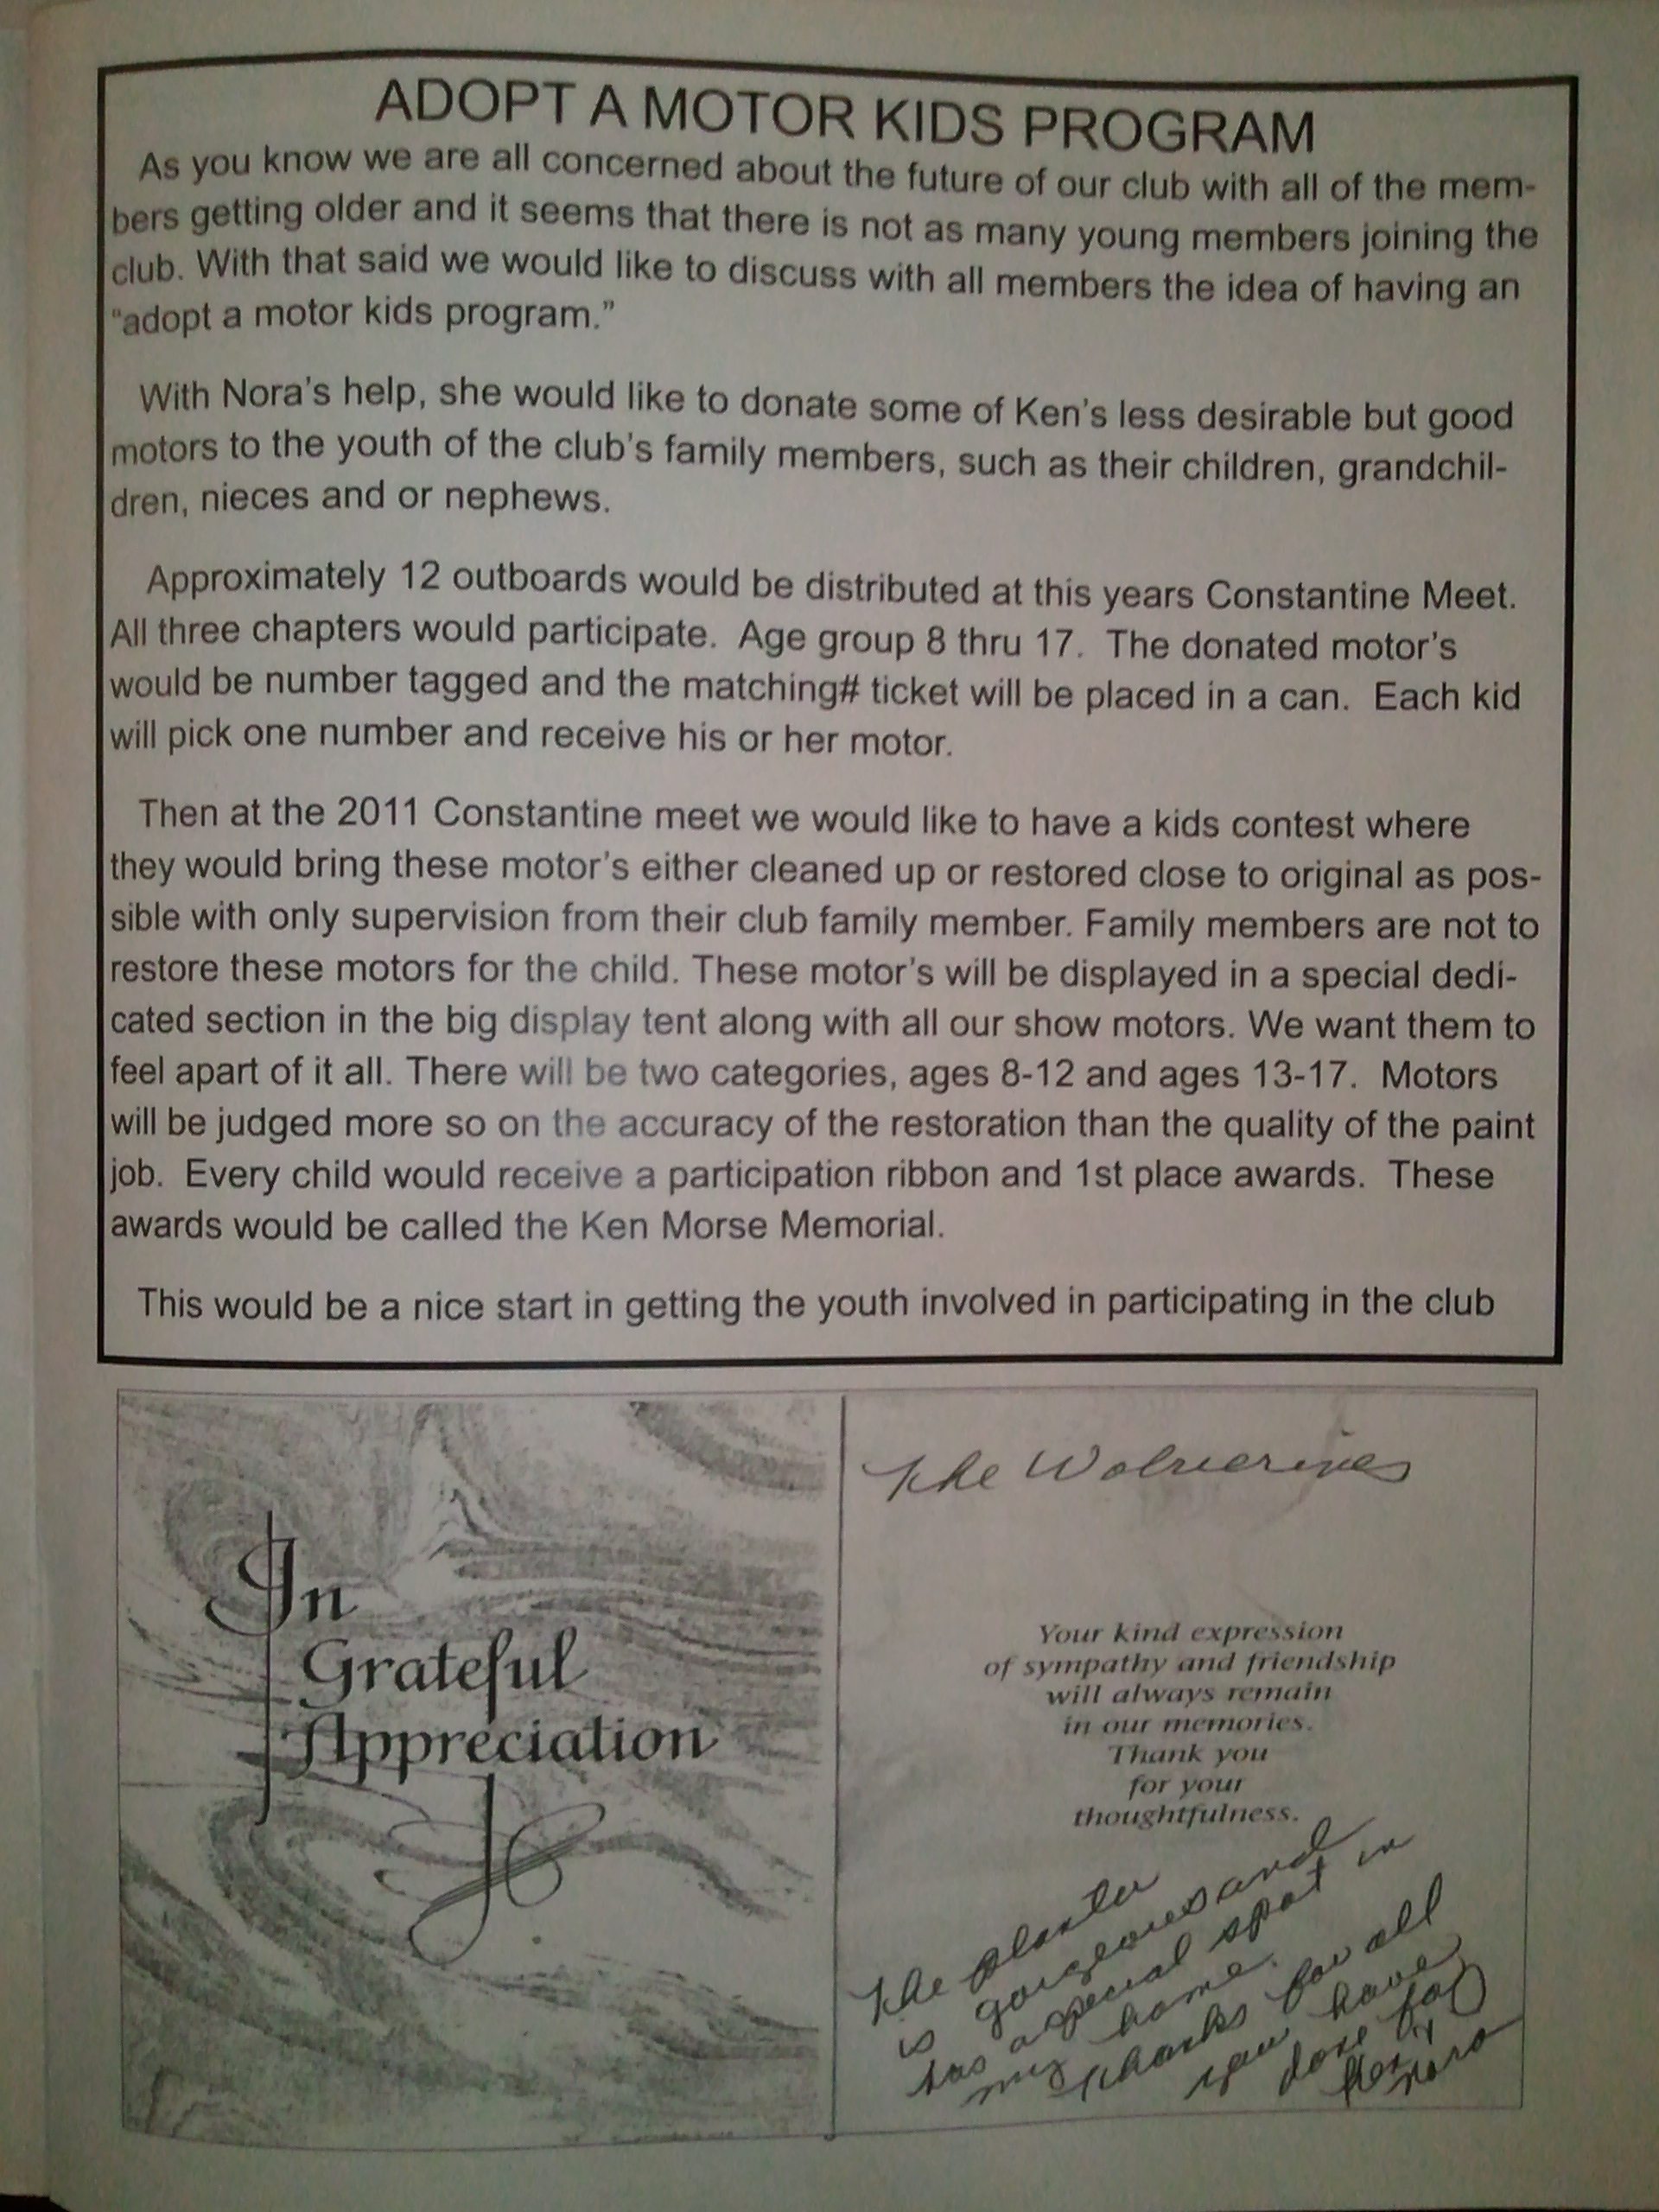 ADOPT A MOTOR KIDS PROGRAM
As you know we are all concerned about the future of our club with all of the mem-
bers getting older and it seems that there is not as many young members joining the
club. With that said we would like to discuss with all members the idea of having an
“adopt a motor kids program.”
With Nora’s help, she would like to donate some of Ken’s less desirable but good
motors to the youth of the club’s family members, such as their children, grandchil-
dren, nieces and or nephews.
Approximately 12 outboards would be distributed at this years Constantine Meet.
All three chapters would participate.  Age group 8 thru 17.  The donated motor’s
would be number tagged and the matching# ticket will be placed in a can.  Each kid
will pick one number and receive his or her motor.
Then at the 2011 Constantine meet we would like to have a kids contest where
they would bring these motor’s either cleaned up or restored close to original as pos-
sible with only supervision from their club family member. Family members are not to
restore these motors for the child. These motor’s will be displayed in a special dedi-
cated section in the big display tent along with all our show motors. We want them to
feel apart of it all. There will be two categories, ages 8-12 and ages 13-17.  Motors
will be judged more so on the accuracy of the restoration than the quality of the paint
job.  Every child would receive a participation ribbon and 1st place awards.  These
awards would be called the Ken Morse Memorial.
This would be a nice start in getting the youth involved in participating in the club
In
Grateful
Appreciation
The Wolverines
Your kind expression
of sympathy and friendship
will always remain
in our memories.
Thank you
for your
thoughtfulness.
The planter
is gorgeous and
has a special spot in
my home.
Thanks for all
you have
done for
Ken &
Nora